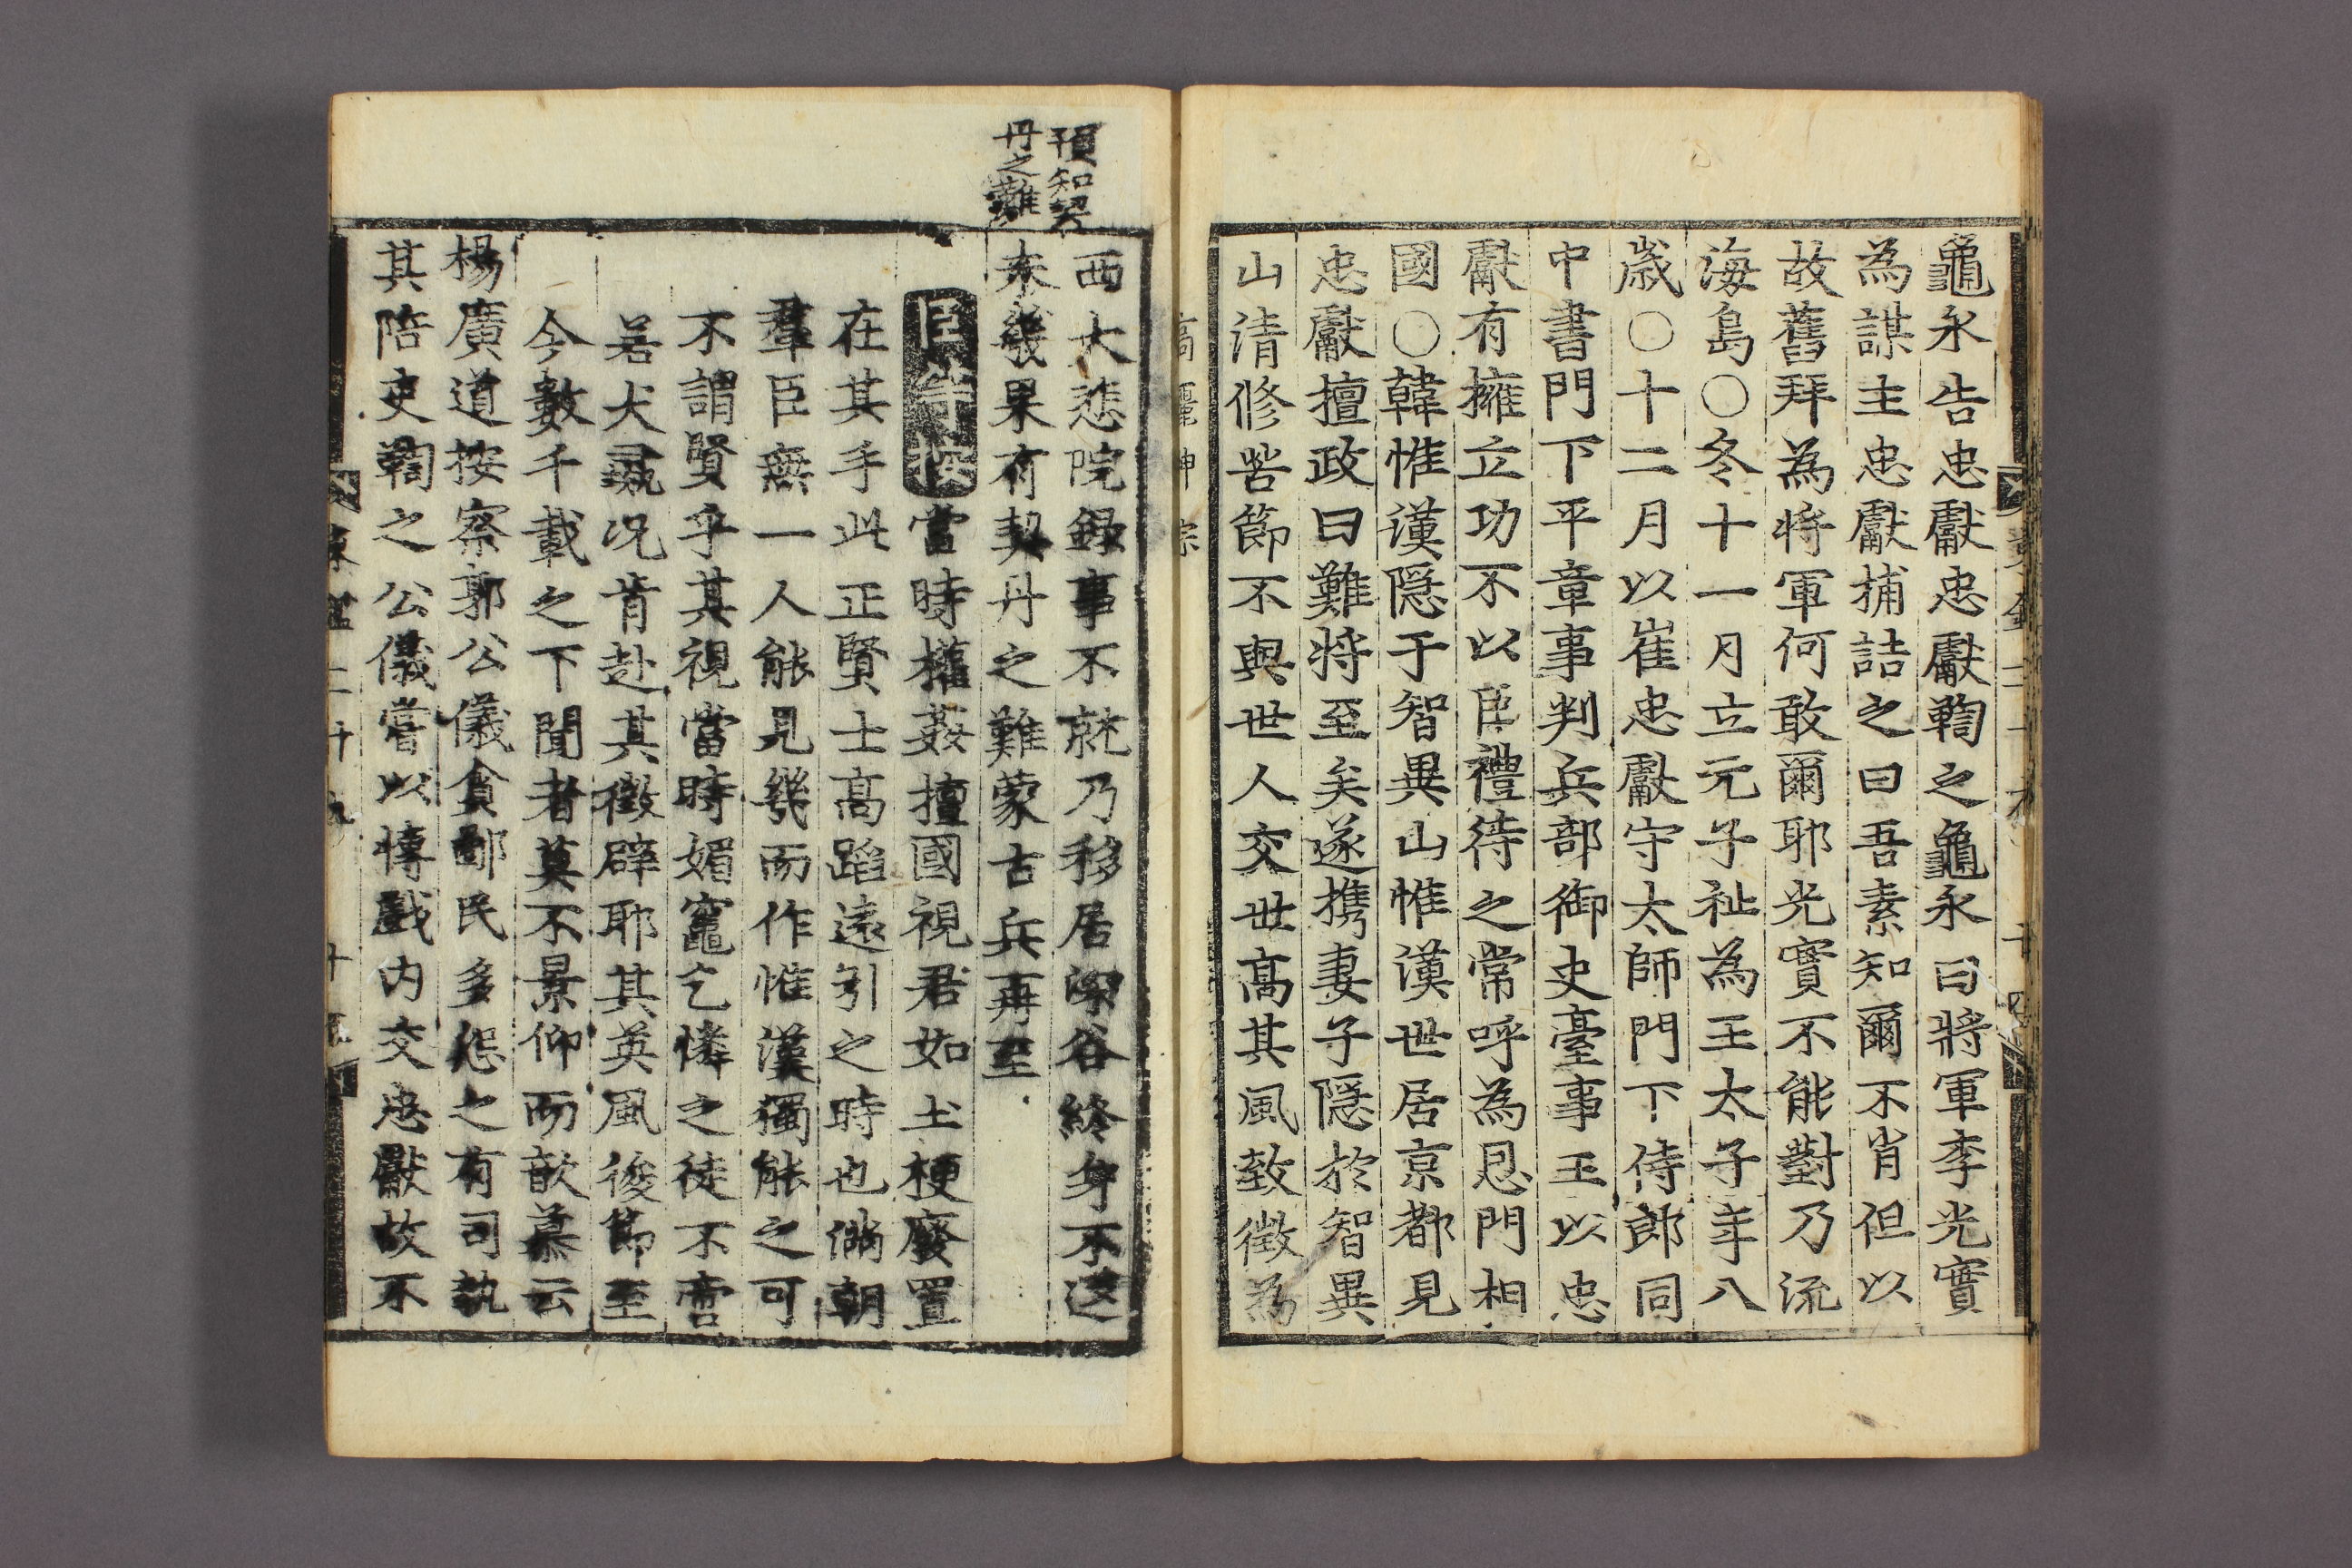 龜永告忠獻忠獻鞫之龜永曰將軍李光實
為謀主忠獻捕詰之曰吾素知爾不肖但以
故舊拜為將軍何敢爾耶光實不能對乃流
海島〇冬十一月立元子祉為王太子年八
歲〇十二月以崔忠獻守太師門下侍郎同
中書門下平章事判兵部御史臺事王以忠
獻有擁立功不以臣禮待之常呼為恩門相
國〇韓惟漢隱于智異山惟漢世居京都見
忠獻擅政曰難將至矣遂携妻子隱於智異
山清修苦節不與世人交世高其風致徵為
高麗神宗
預知契
丹之難
西大悲院錄事不就乃移居深谷終身不返
未幾果有契丹之難蒙古兵再至
臣等按當時權姦擅國視君如土梗廢置
在其手此正賢士高蹈遠引之時也滿朝
羣臣無一人能見幾而作惟漢獨能之可
不謂賢乎其視當時媚竈乞憐之徒不啻
若犬彘况肯赴其徵辟耶其英風後節至
今數千載之下聞者莫不景仰而歆慕云
楊廣道按察郭公儀貪鄙民多怨之有司執
其陪吏鞫之公儀嘗以博戲內交忠獻故不